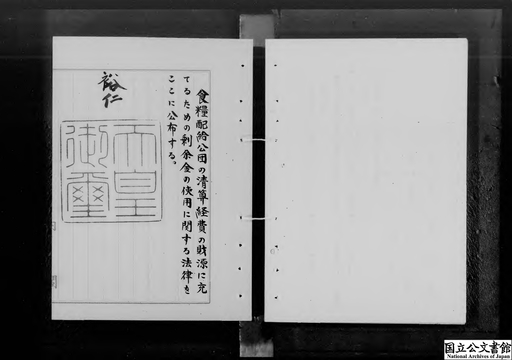 食糧配給公団の清算経費の財源に充
てるための剰余金の使用に関する法律を
ここに公布する。
裕仁
天皇
御璽
国立公文書館
National Archives of Japan